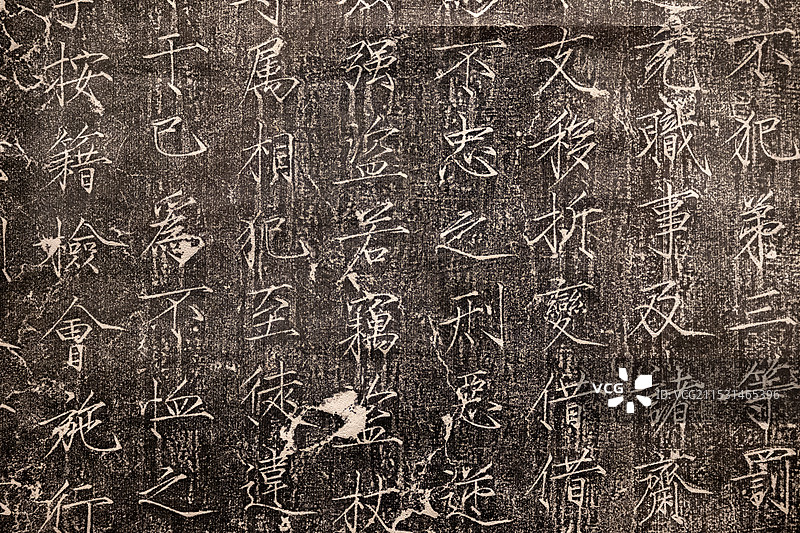 不犯第三等罰
充職事及諸齋
文移折變借借
不忠之刑惡逆
强盗若竊盗杖
属相犯至徒違
干已爲不恤之
按籍檢會施行
VCG
ID:VCG211531465396